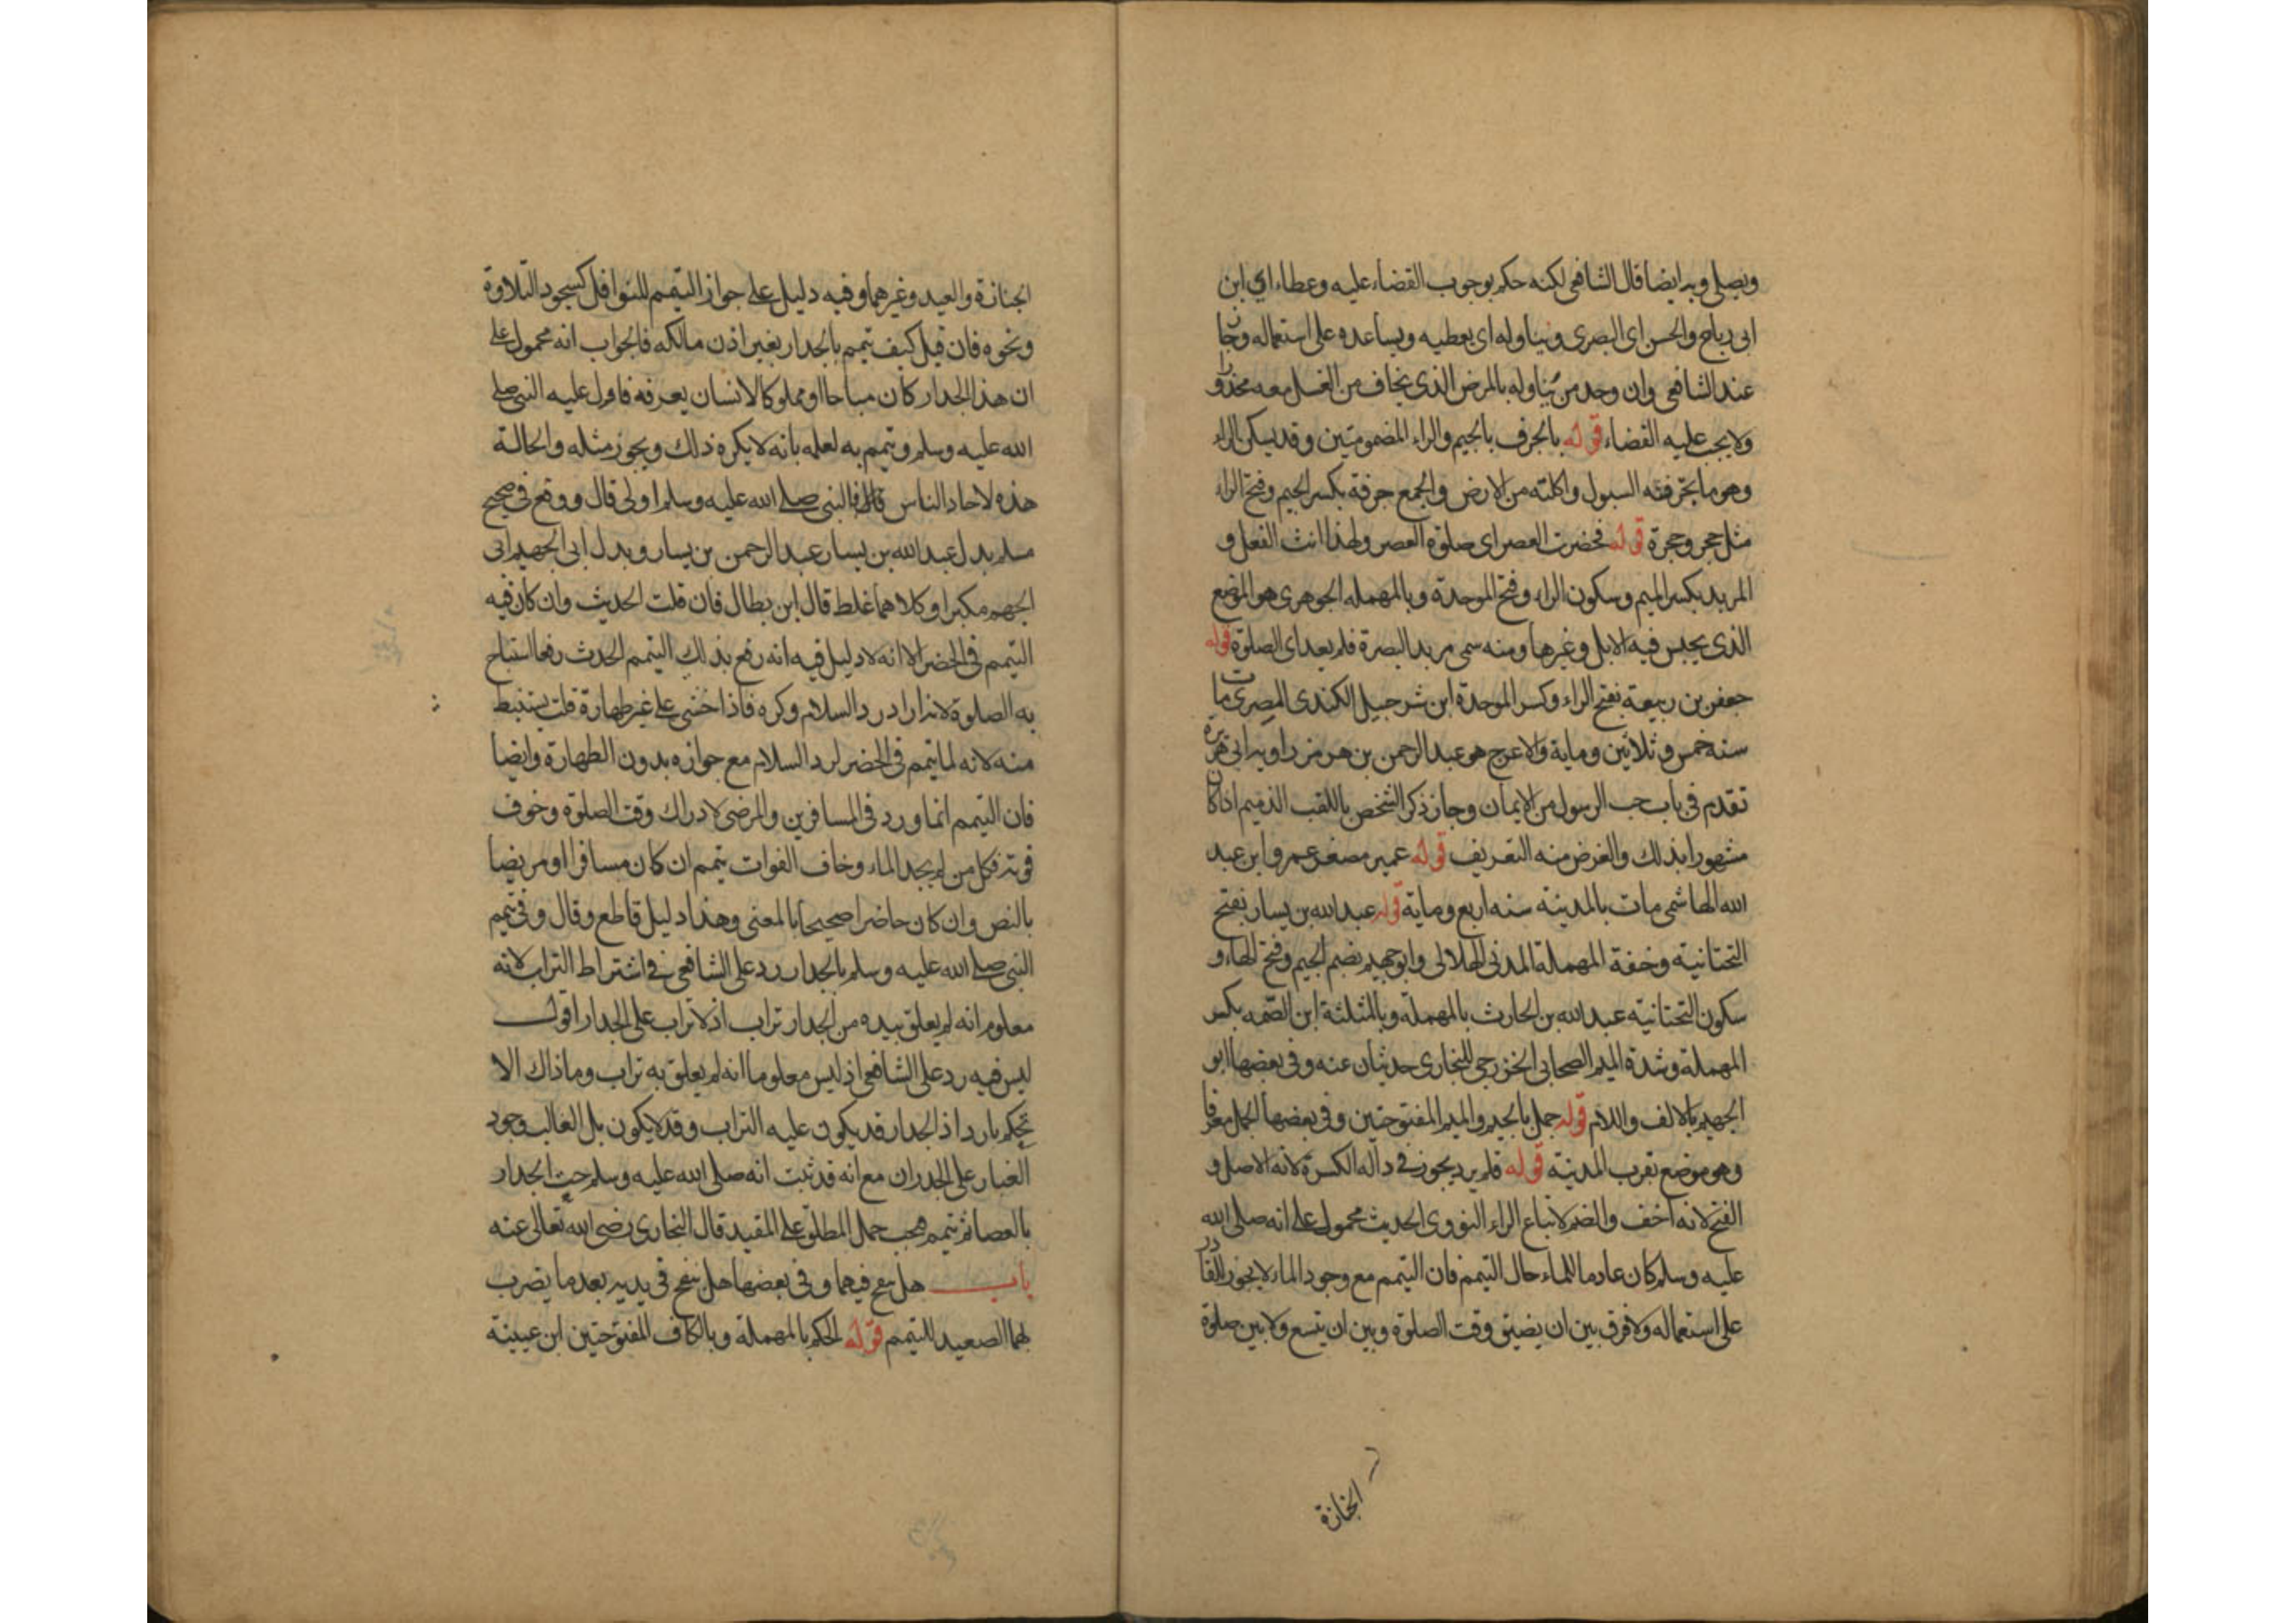 ويصلى وبه ايضا قال الشافعى لكنه حكم بوجوب القضاء عليه وعطاء اى ابن
ابى رباح والحسن اى البصرى ويناوله اى يعطيه ويساعده على استعماله وجاز
عند الشافعى وان وجد من يناوله بالمرض الذى يخاف من الغسل معه محذورا
ولا يجب عليه القضاء قوله بالجرف بالجيم والراء المضمومتين وقد يسكن الراء
وهو ما تجرفته السيول واكلته من الارض والجمع جرفة بكسر الجيم وفتح الراء
مثل جحر وجحرة قوله فحضرت العصر اى صلوة العصر ولهذا انث الفعل و
المربد بكسر الميم وسكون الراء وفتح الموحدة وبالمهملة الجوهرى هو الموضع
الذى يحبس فيه الابل وغيرها ومنه سمى مربد البصرة فلم يعد اى الصلوة قوله
جعفر بن ربيعة بفتح الراء وكسر الموحدة ابن شرحبيل الكندى المصرى مات
سنه خمس وثلاثين وماية والاعرج هو عبد الرحمن بن هرمز راوية ابى هريرة
تقدم فى باب حب الرسول من الايمان وجاز ذكر الشخص باللقب الذميم اذا كان
مشهورا بذلك والغرض منه التعريف قوله عمير مصغر عمرو ابن عبد
الله الهاشمى مات بالمدينة سنه اربع وماية قوله عبد الله بن يسار بفتح
التحتانية وخفة المهملة المدنى الهلالى وابو جهيم بضم الجيم وفتح الهاء و
سكون التحتانية عبد الله بن الحارث بالمهملة وبالمثلثة ابن الصمه بكسر
المهملة وشدة الميم الصحابى الخزرجى للبخارى حديثان عنه وفى بعضها ابو
الجهيم بالالف واللام قوله جمل بالجيم والميم المفتوحتين وفى بعضها الجمل معرفا
وهو موضع بقرب المدينة قوله فلم يرد يجوز فى داله الكسرة لانه الاصل و
الفتح لانه اخف والضم لاتباع الراء النووى الحديث محمول على انه صلى الله
عليه وسلم كان عادما للماء حال التيمم فان التيمم مع وجود الماء لا يجوز للقادر
على استعماله ولا فرق بين ان يضيق وقت الصلوة وبين ان يتسع ولا بين صلوة
الجنازة
الجنازة والعيد وغيرهما وفيه دليل على جواز التيمم للنوافل كسجود التلاوة
ونحوه فان قيل كيف تيمم بالجدار بغير اذن مالكه فالجواب انه محمول على
ان هذا الجدار كان مباحا او مملوكا لانسان يعرفه فاول عليه النبى صلى
الله عليه وسلم وتيمم به لعلمه بانه لا يكره ذلك ويجوز مثله والحالة
هذه لاحاد الناس فالنبى صلى الله عليه وسلم اولى قال ووقع فى صحيح
مسلم بدل عبد الله بن يسار عبد الرحمن بن يسار وبدل ابى الجهيم ابى
الجهم مكبرا وكلاهما غلط قال ابن بطال فان قلت الحديث وان كان فيه
التيمم فى الحضر الا انه لا دليل فيه انه رفع بذلك التيمم الحدث رفعا استباح
به الصلوة لانه اراد رد السلام وكره فاذا خشى على غير طهارة قلت يستنبط
منه لانه لما تيمم فى الحضر لرد السلام مع جوازه بدون الطهارة وايضا
فان التيمم انما ورد فى المسافرين والمرضى لادراك وقت الصلوة وخوف
فوته فكل من لم يجد الماء وخاف الفوات تيمم ان كان مسافرا او مريضا
بالنص وان كان حاضرا صحيحا بالمعنى وهذا دليل قاطع وقال وفى تيمم
النبى صلى الله عليه وسلم بالجدار رد على الشافعى فى اشتراط التراب لانه
معلوم انه لم يعلق بيده من الجدار تراب اذ لا تراب على الجدار اقول
ليس فيه رد على الشافعى اذ ليس معلوما انه لم يعلق به تراب وما ذاك الا
تحكم بارد اذ الجدار قد يكون عليه التراب وقد لا يكون بل الغالب وجود
الغبار على الجدران مع انه قد ثبت انه صلى الله عليه وسلم حت الجدار
بالعصا ثم تيمم فيجب حمل المطلق على المقيد قال البخارى رضى الله تعالى عنه
باب هل ينفخ فيهما وفى بعضها هل ينفخ فى يديه بعد ما يضرب
بهما الصعيد للتيمم قوله الحكم بالمهملة وبالكاف المفتوحتين ابن عيينة